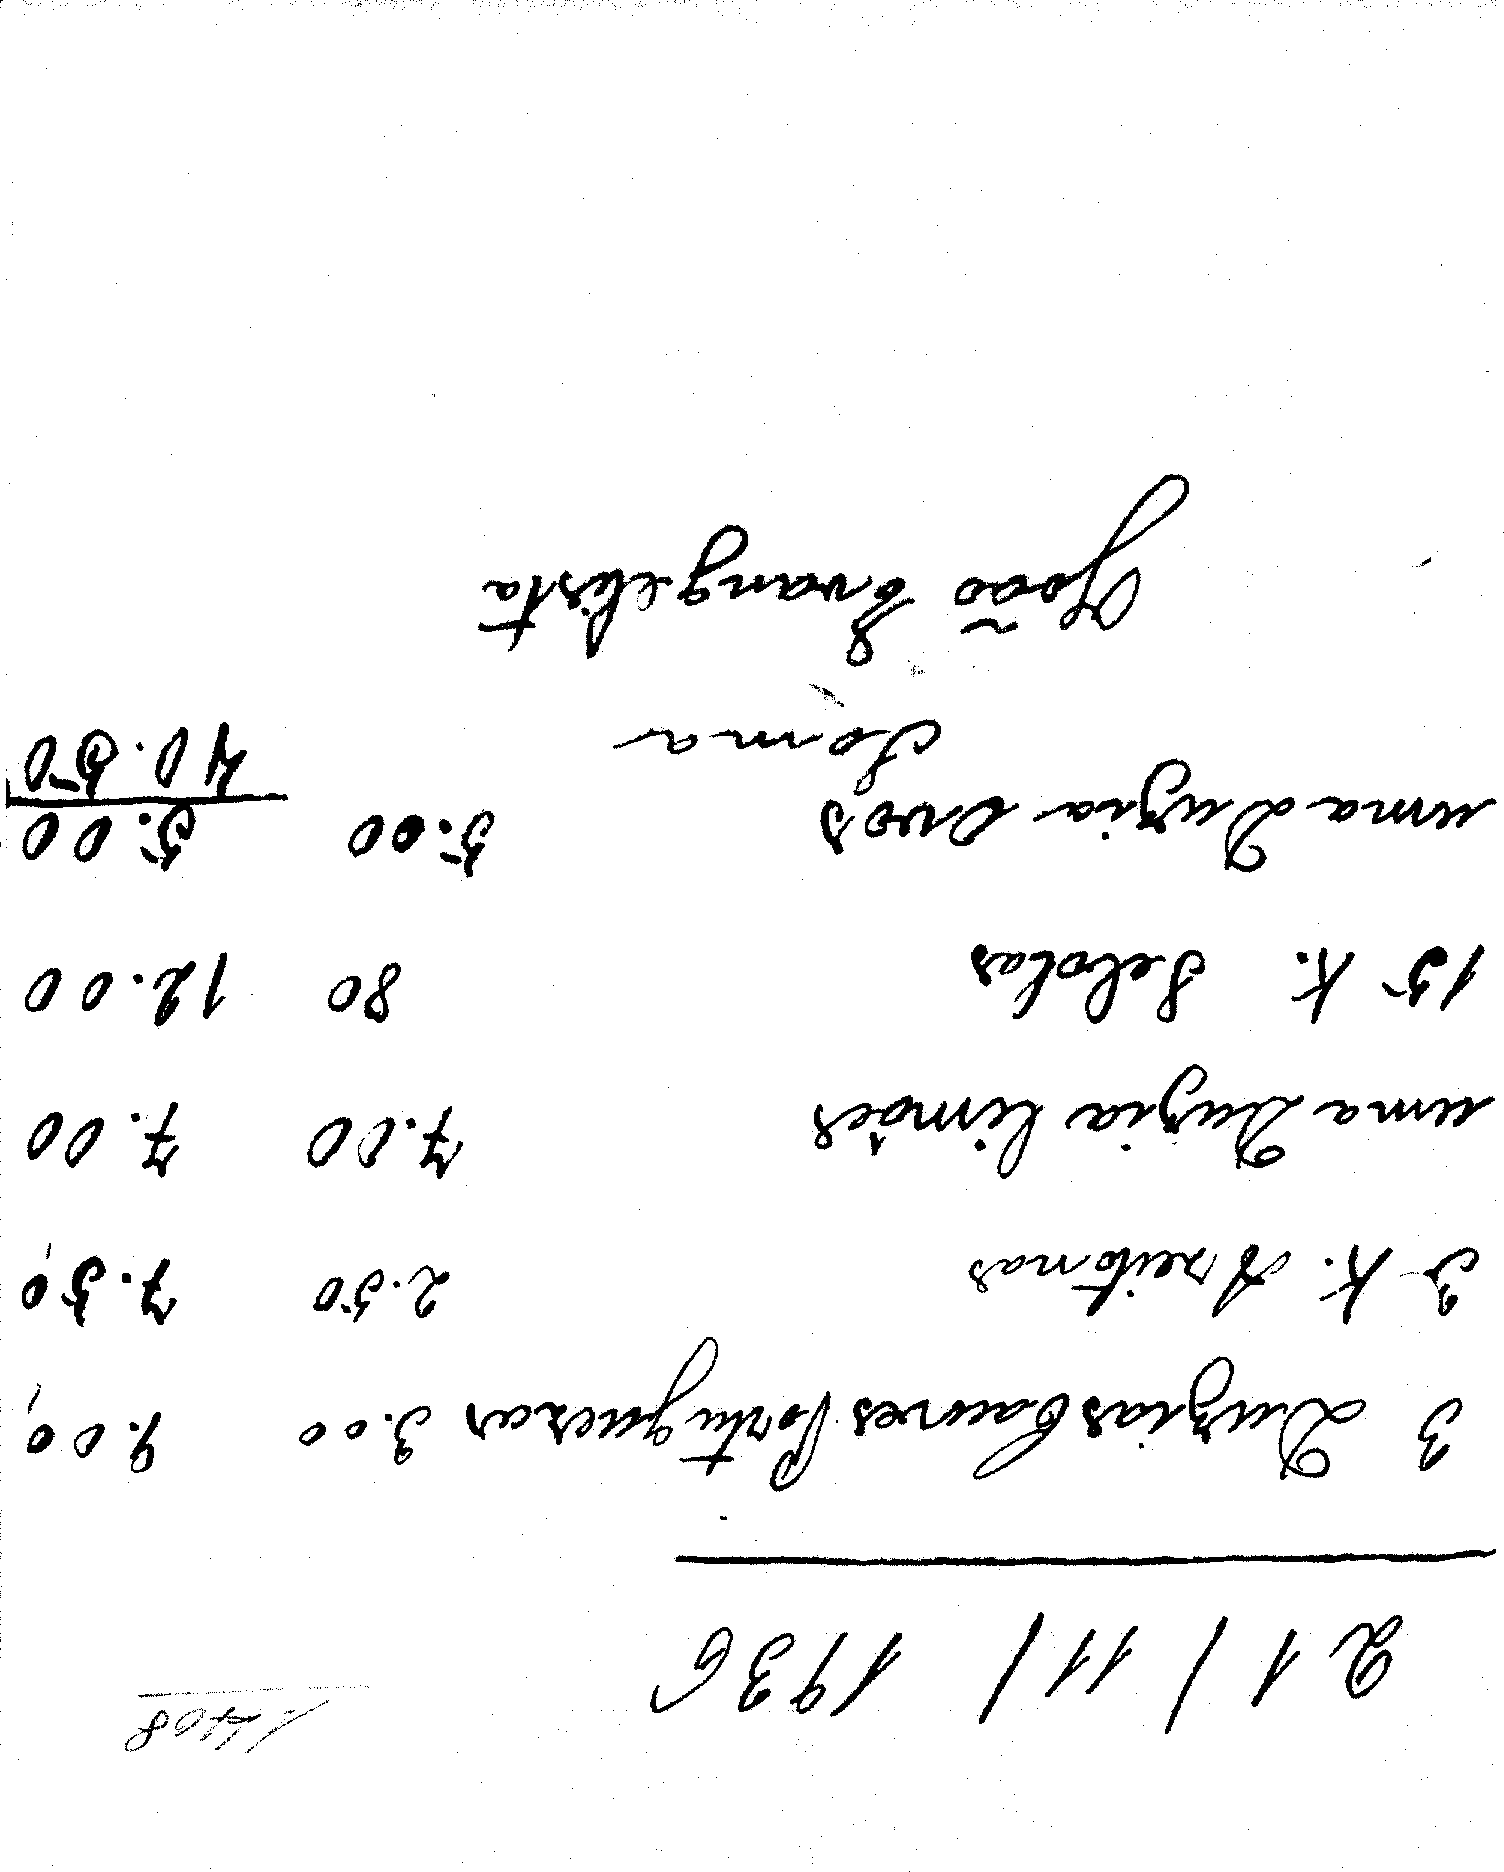 1.408
21/11/1936
3 Duzias Caivres Portuguezas 3.00 9.00,
3 K. Azeitonas 2.50 7.50,
uma Duzia limões 7.00 7.00
15 K. Sebolas 80 12.00
uma Duzia Ovos 5.00 5.00
Soma 40.50
João Evangelista